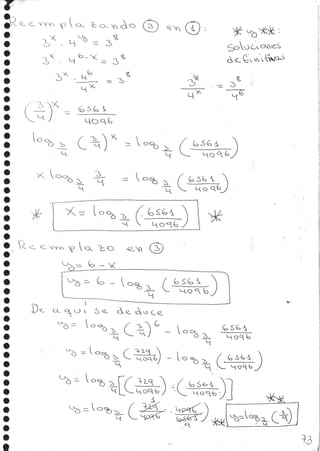 Reemplazando ③ en ①:
3^x . 4^y = 3^8
3^x . 4^(6-x) = 3^8
3^x . 4^6/4^x = 3^8
* y **:
Soluciones
definitivas
3^x/4^x = 3^8/4^6
(3/4)^x = 6561/4096
log_(3/4) (3/4)^x = log_(3/4) (6561/4096)
x log_(3/4) 3/4 = log_(3/4) (6561/4096)
* x = log_(3/4) (6561/4096) *
Reemplazo en ③
y = 6 - x
y = 6 - log_(3/4) (6561/4096)
De aquí se deduce
y = log_(3/4) (3/4)^6 - log_(3/4) 6561/4096
y = log_(3/4) (729/4096) - log_(3/4) (6561/4096)
y = log_(3/4) [(729/4096) : (6561/4096)]
y = log_(3/4) (729/4096 . 4096/6561)
1
9
** y = log_(3/4) (1/9) **
73